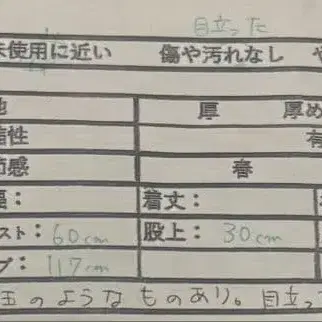 目立った
未使用に近い 傷や汚れなし や
地 厚 厚め
有
節感 春
着丈：
スト：60cm 股上：30cm
プ：117cm
玉のようなものあり。目立っ